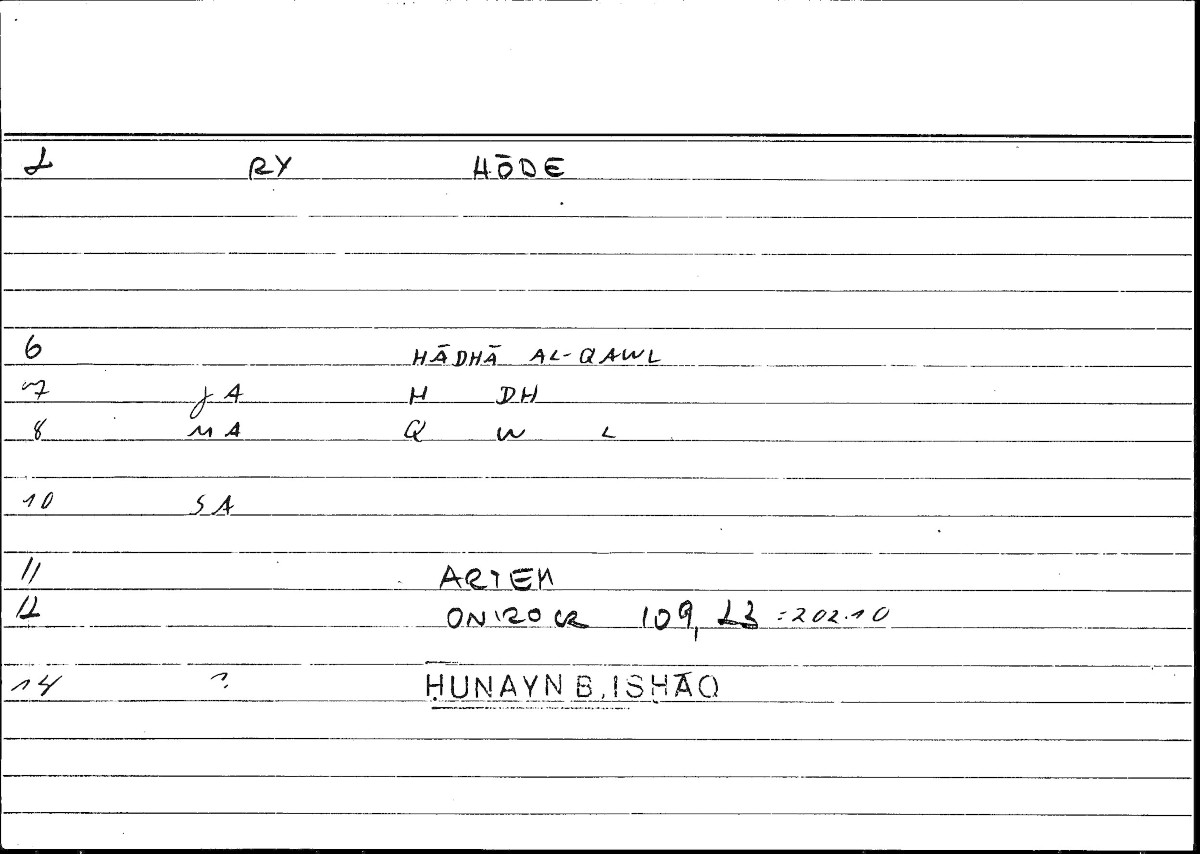 1 RY HŌDE
6 HĀDHĀ AL-QAWL
7 JA H DH
8 MA Q W L
10 SA
11 ARTEM
12 ONIROCR 109, 13 = 202.10
14 ? ḤUNAYN B. ISḤĀQ